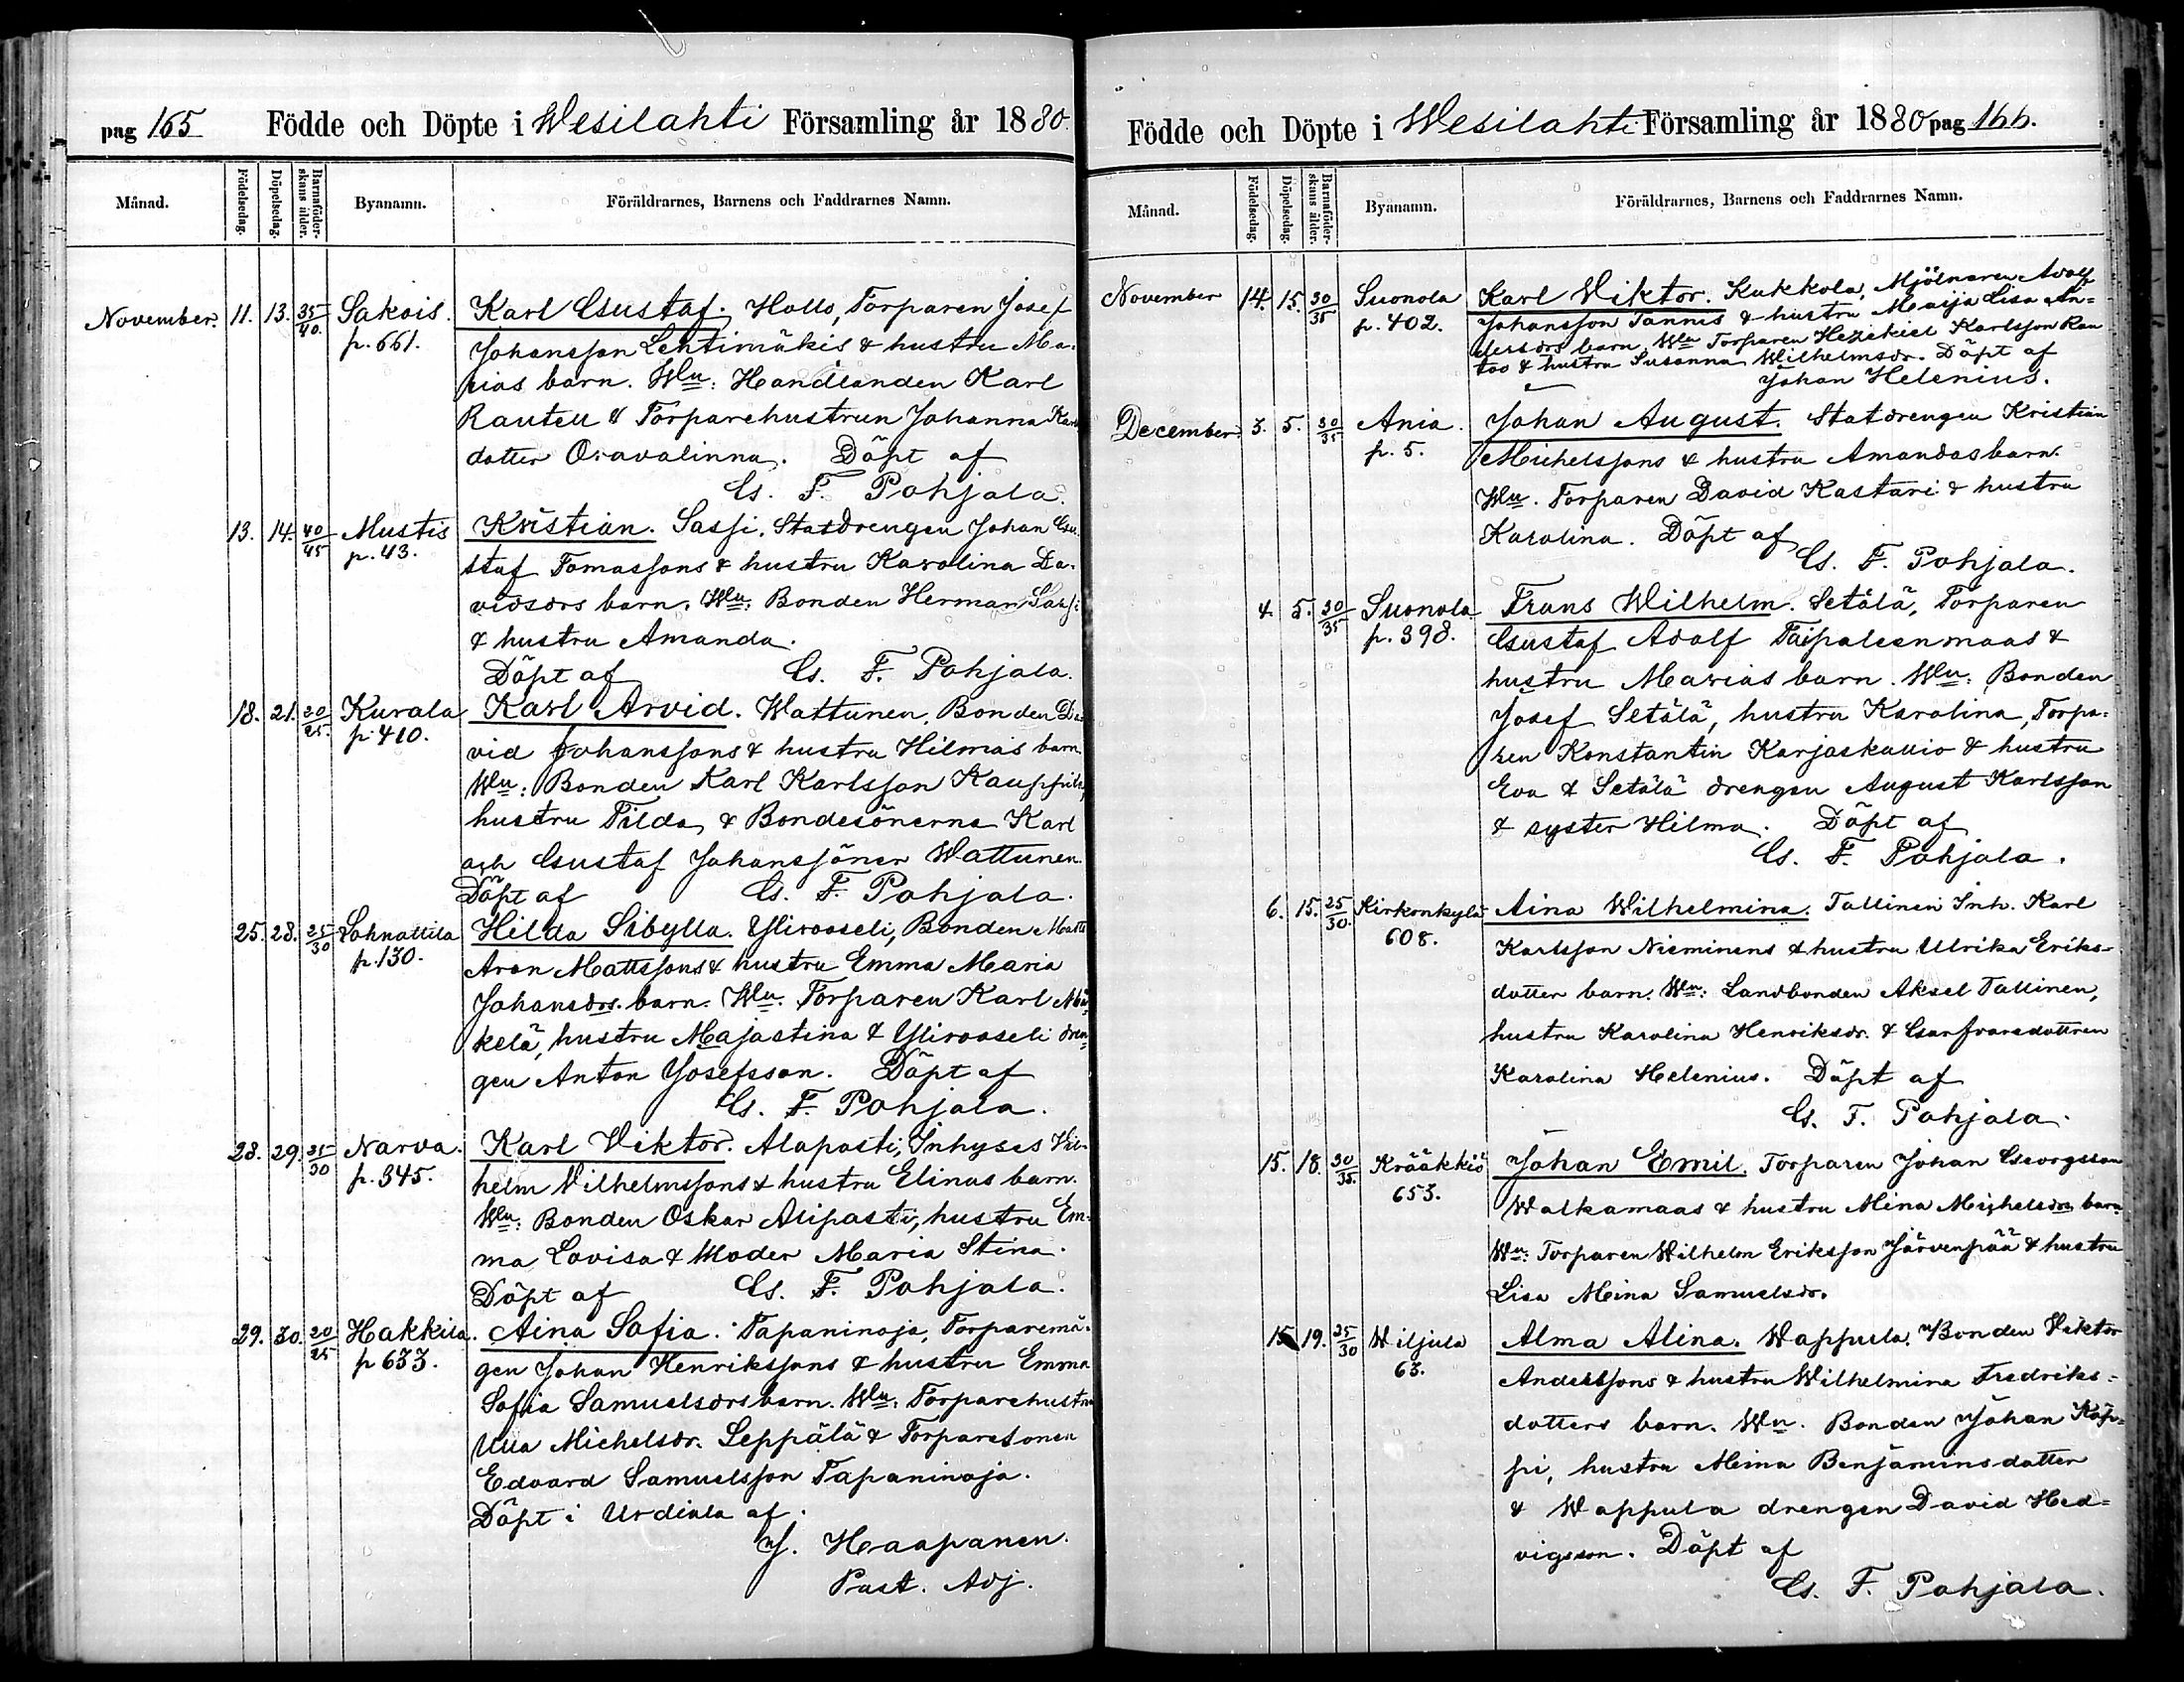 pag 165 Födde och Döpte i Wesilahti Församling år 1880.
Månad. Födelsedag. Döpelsedag. Barnaföderskans ålder. Byanamn. Föräldrarnes, Barnens och Faddrarnes Namn.
November. 11. 13. 35/40. Sakois. Karl Gustaf. Hollo, Torparen Josef
p. 661. Johansson Lehtimäkis & hustru Ma-
rias barn. Wn: Handlanden Karl
Rauteu & Torparehustrun Johanna Karls
dotter Oravalinna. Döpt af
G. F. Pohjala.
13. 14. 40/45 Mustis Kristian. Sassi, Statdrengen Johan Gu-
p. 43. staf Tomassons & hustru Karolina Da-
vidsdrs barn. Wn: Bonden Herman Sassi
& hustru Amanda.
Döpt af G. F. Pohjala.
18. 21. 20/25. Kurala Karl Arvid. Wattunen, Bonden Da-
p. 410. vid Johanssons & hustru Hilmas barn.
Wn: Bonden Karl Karlsson Kauppila,
hustru Tilda, & Bondesönerna Karl
och Gustaf Johanssöner Wattunen.
Döpt af G. F. Pohjala.
25. 28. 25/30 Lahnattila Hilda Sibylla. Ylirooseli, Bonden Matts
p. 130. Aron Mattssons & hustru Emma Maria
Johansdrs. barn. Wn: Torparen Karl Mä-
kelä, hustru Majastina & Ylirooseli dren-
gen Anton Josefsson. Döpt af
G. F. Pohjala.
28. 29. 25/30 Narva. Karl Viktor. Alapasti, Inhyses Vil-
p. 345. helm Vilhelmssons & hustru Elinas barn.
Wn: Bonden Oskar Alipasti, hustru Em-
ma Lovisa & Moder Maria Stina.
Döpt af G. F. Pohjala.
29. 30. 20/25 Hakkila. Aina Sofia. Tapaninoja, Torparemå-
p 633. gen Johan Henrikssons & hustru Emma
Sofia Samuelsdrs barn. Wn: Torparehustru
Ulla Michelsdr. Seppälä & Torparesonen
Edvard Samuelsson Tapaninoja.
Döpt i Urdiala af
J. Haapanen.
Past. Adj.
Födde och Döpte i Wesilahti Församling år 1880 pag 166.
Månad. Födelsedag. Döpelsedag. Barnaföderskans ålder. Byanamn. Föräldrarnes, Barnens och Faddrarnes Namn.
November 14. 15. 30/35 Suonola Karl Viktor. Kukkola, Mjölnaren Adolf
p. 402. Johansson Tannis & hustru Maija Lisa An-
dersdrs barn. Wn Torparen Hezekiel Karlsson Rau
too & hustru Susanna Wilhelmsdr. Döpt af
Johan Helenius.
December. 3. 5. 30/35. Ania. Johan August. Statdrengen Kristian
p. 5. Michelssons & hustru Amandas barn.
Wn. Torparen David Kastari & hustru
Karolina. Döpt af
G. F. Pohjala.
4. 5. 30/35 Suonola Frans Wilhelm. Setälä, Torparen
p. 398. Gustaf Adolf Taipaleenmaas &
hustru Marias barn. Wn: Bonden
Josef Setälä, hustru Karolina, Torpa-
ren Konstantin Karjaskallio & hustru
Eva & Setälä drengen August Karlsson
& syster Hilma. Döpt af
G. F. Pohjala.
6. 15. 25/30. Kirkonkylä Aina Wilhelmina. Tallinen Inh. Karl
608. Karlsson Nieminens & hustru Ulrika Eriks-
dotter barn. Wn: Landbonden Aksel Tallinen,
hustru Karolina Henriksdr. & Garfvaredottren
Karolina Helenius. Döpt af
G. F. Pohjala.
15. 18. 30/35. Krääkkiö Johan Emil. Torparen Johan Georgsson
653. Walkamaas & hustru Mina Michelsdrs barn
Wn: Torparen Wilhelm Eriksson Järvenpää & hustru
Lisa Mina Samuelsdr.
15. 19. 25/30 Wiljula Alma Alina. Wappula, Bonden Viktor
63. Anderssons & hustru Wilhelmina Fredriks-
dotters barn. Wn. Bonden Johan Kop-
pi, hustru Mina Benjaminsdotter
& Wappula drengen David Hed-
vigsson. Döpt af
G. F. Pohjala.